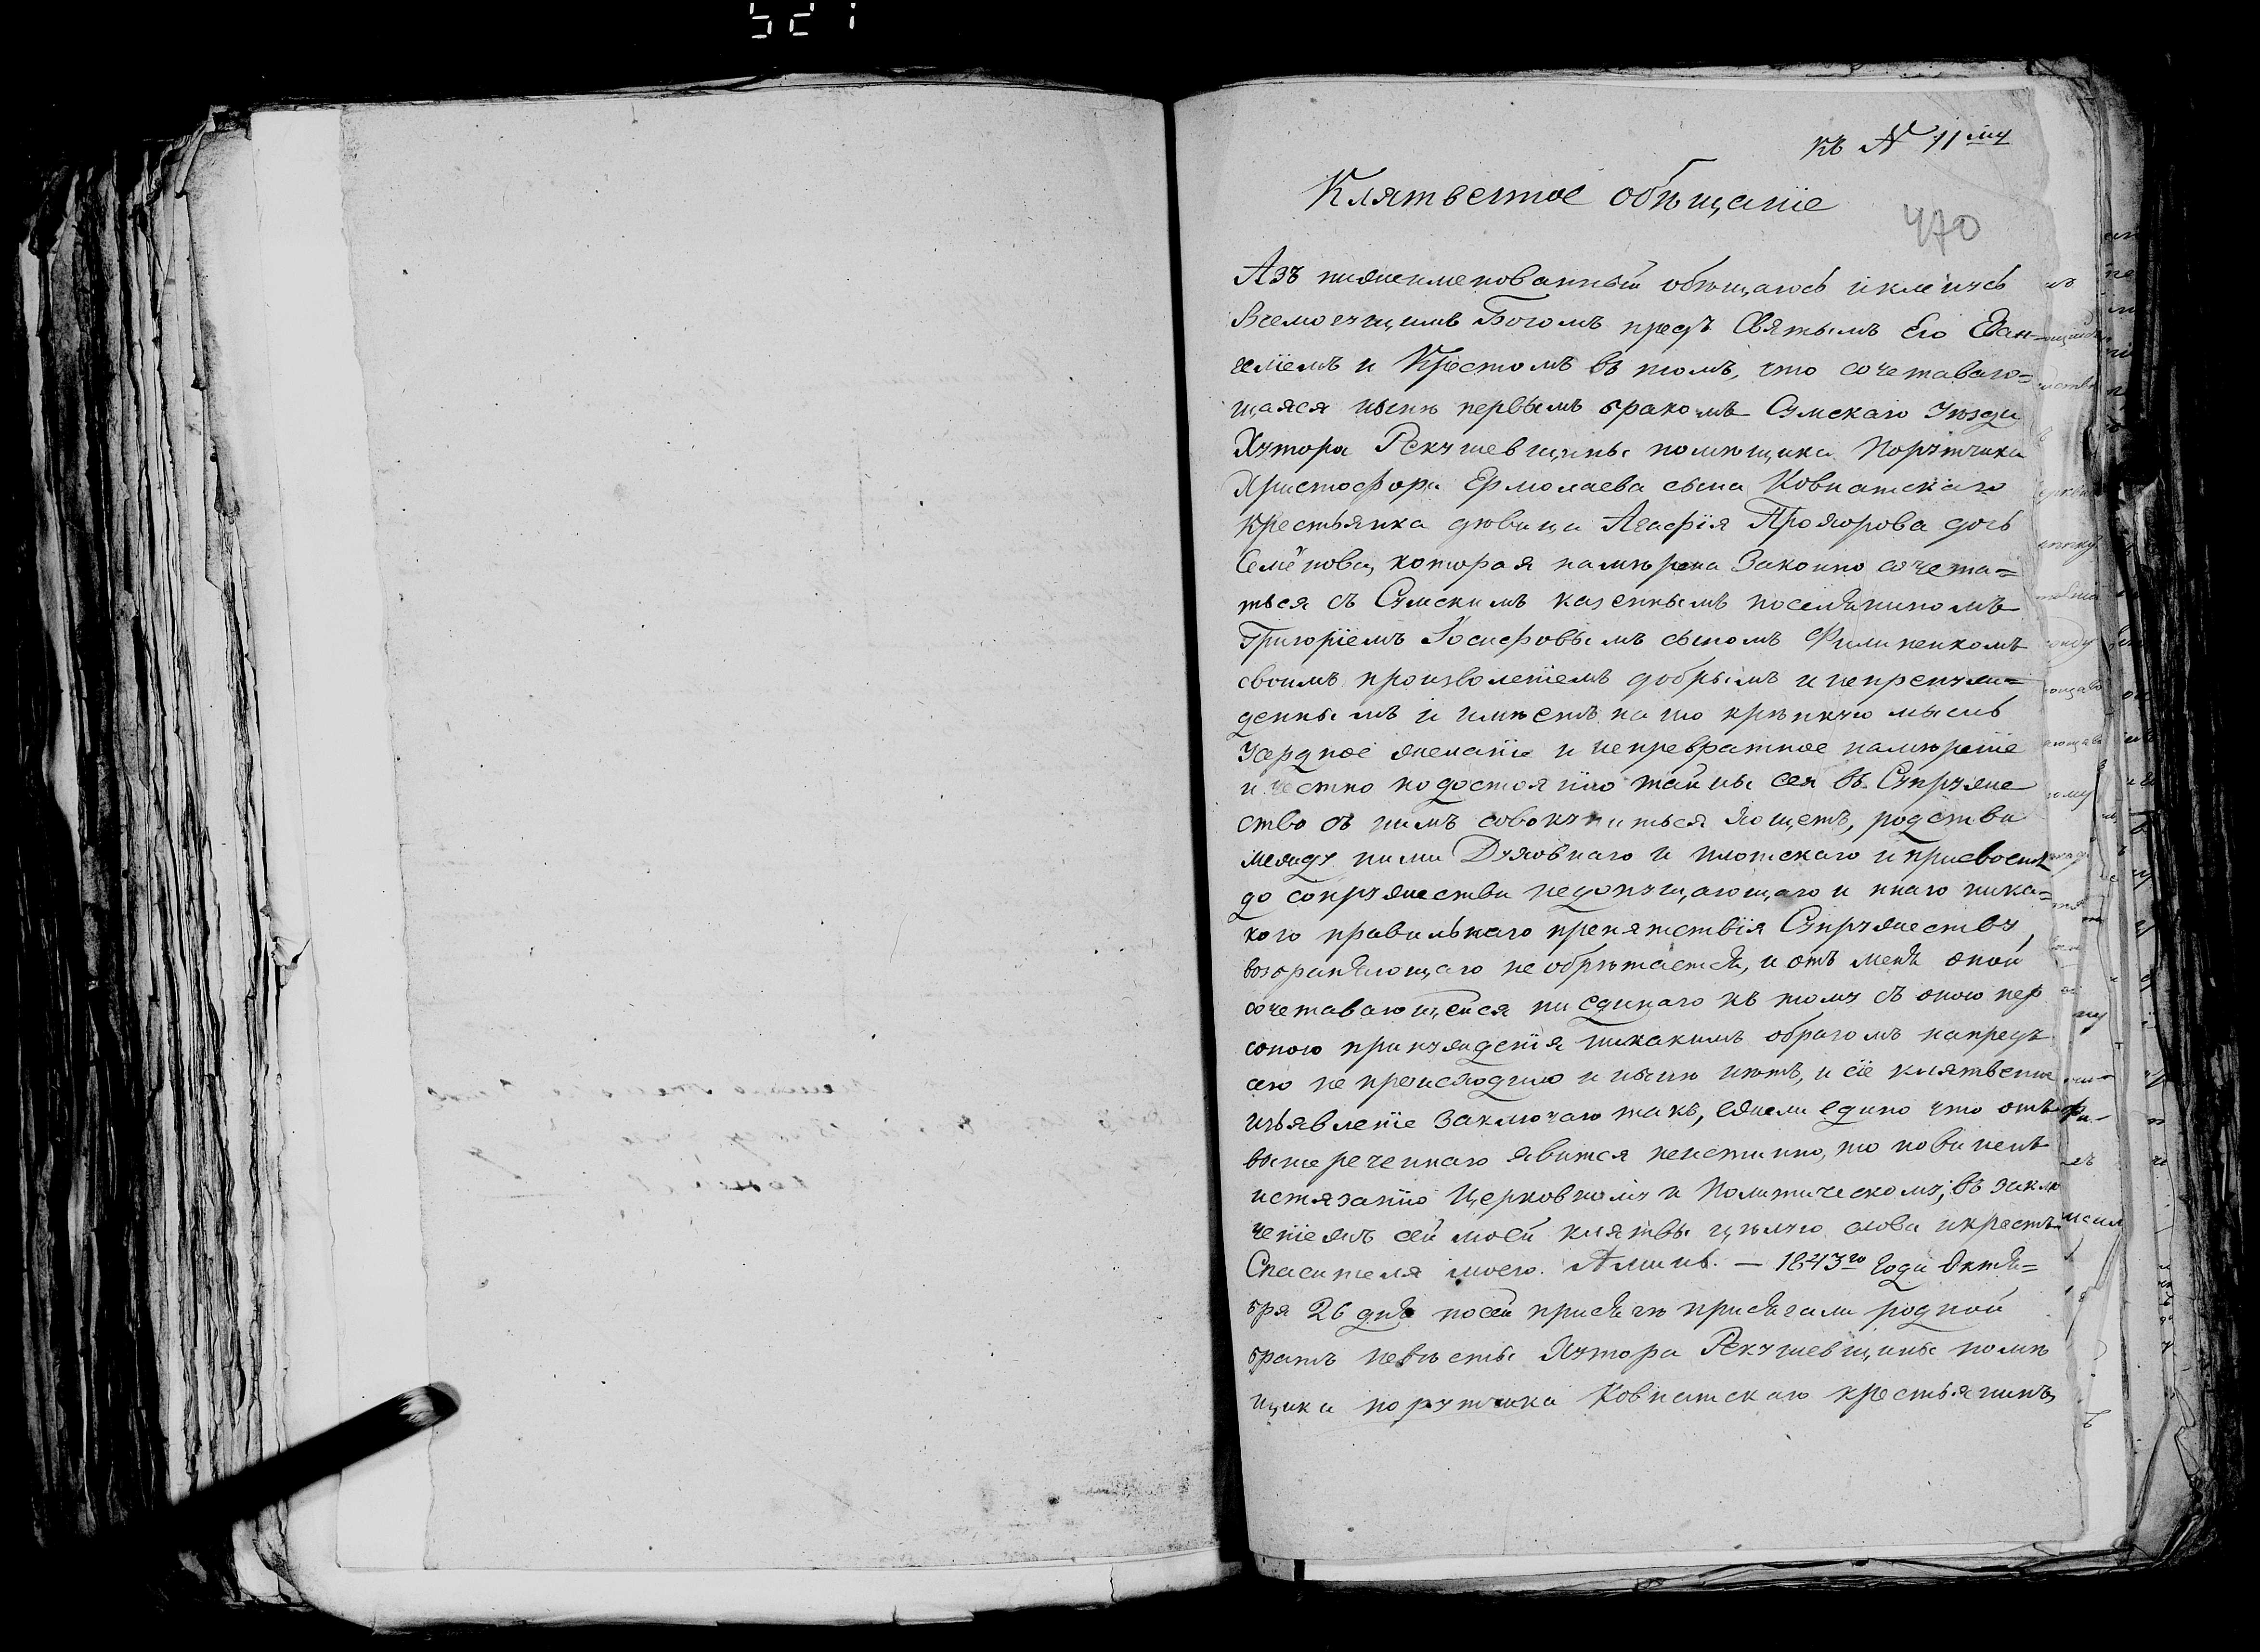 521
къ № 11му
Клятвенное обѣщаніе
470
Азъ нижеименованный обѣщаюсь и клєнусь
Всемогущимъ Богомъ предъ Святымъ Его Еван-
геліемъ и Крестомъ въ томъ, что сочетаваю=
щаяся нынѣ первымъ бракомъ Сумскаго Уѣзда
Хутора Рекушевщины помѣщика Порутчика
Христофора Ермолаева сына Ковнатскаго
крестьянка дѣвица Агафія Прохорова дочь
Семёнова, которая намѣрена Законно сочета=
ться съ Сумскимъ казеннымъ поселяниномъ
Григоріемъ Іосифовымъ сыномъ Филипенкомъ
своимъ произволеніемъ добрымъ и непренуж=
деннымъ и имѣетъ на то крѣпкую мысль
Усердное желаніе и непревратное намѣреніе
и честно по достоянію тайны сея въ Супруже
ство съ нимъ совокупиться хощетъ, родства
между ними Духовнаго и плотскаго и присвоенія
до сопружества недопущающаго и инаго ника=
кого правильнаго препятствія Супружеству
возбраняющаго не обрѣтается, и отъ меня оной
сочетавающейся ни единаго къ тому съ оною пер
соною принужденія никакимъ образомъ напредъ
сего не происходило и нынѣ нѣтъ, и сіе клятвенное
изъявленіе заключаю такъ, ежели едино что отъ
вышереченнаго явится неистинно, то повиненъ
истязанію Церковному и Политическому, въ заклю
ченіежъ сей моей клятвы цѣлую слова и крестъ
Спасителя моего. Аминь. — 1843го Года Октя=
бря 26 дня по сей присягѣ присягали родной
братъ невѣсты Хутора Рекушевщины помѣ
щика порутчика Ковнатскаго крестьянинъ